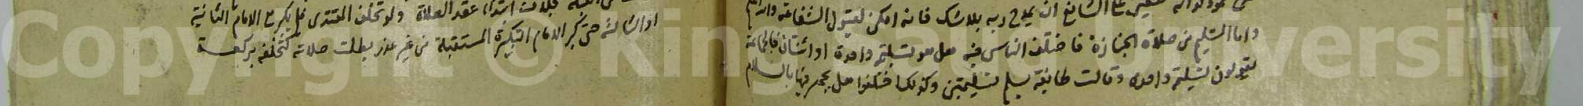 واما التسليم من صلاة الجنازة فاختلف الناس فيه هل هو تسليمة واحدة او اثنتان فالجماعة
يقولون تسليمة واحدة وقالت طائفة يسلم تسليمتين وكذلك اختلفوا هل يجهر فيها بالسلام
ابتداء عقد الصلاة ولو تخلف المقتدي فلم يكبر مع الامام الثانية
او الثالثة حتى كبر الامام التكبيرة المستقبلة من غير عذر بطلت صلاته كتخلفه بركعة
Copyright © King University